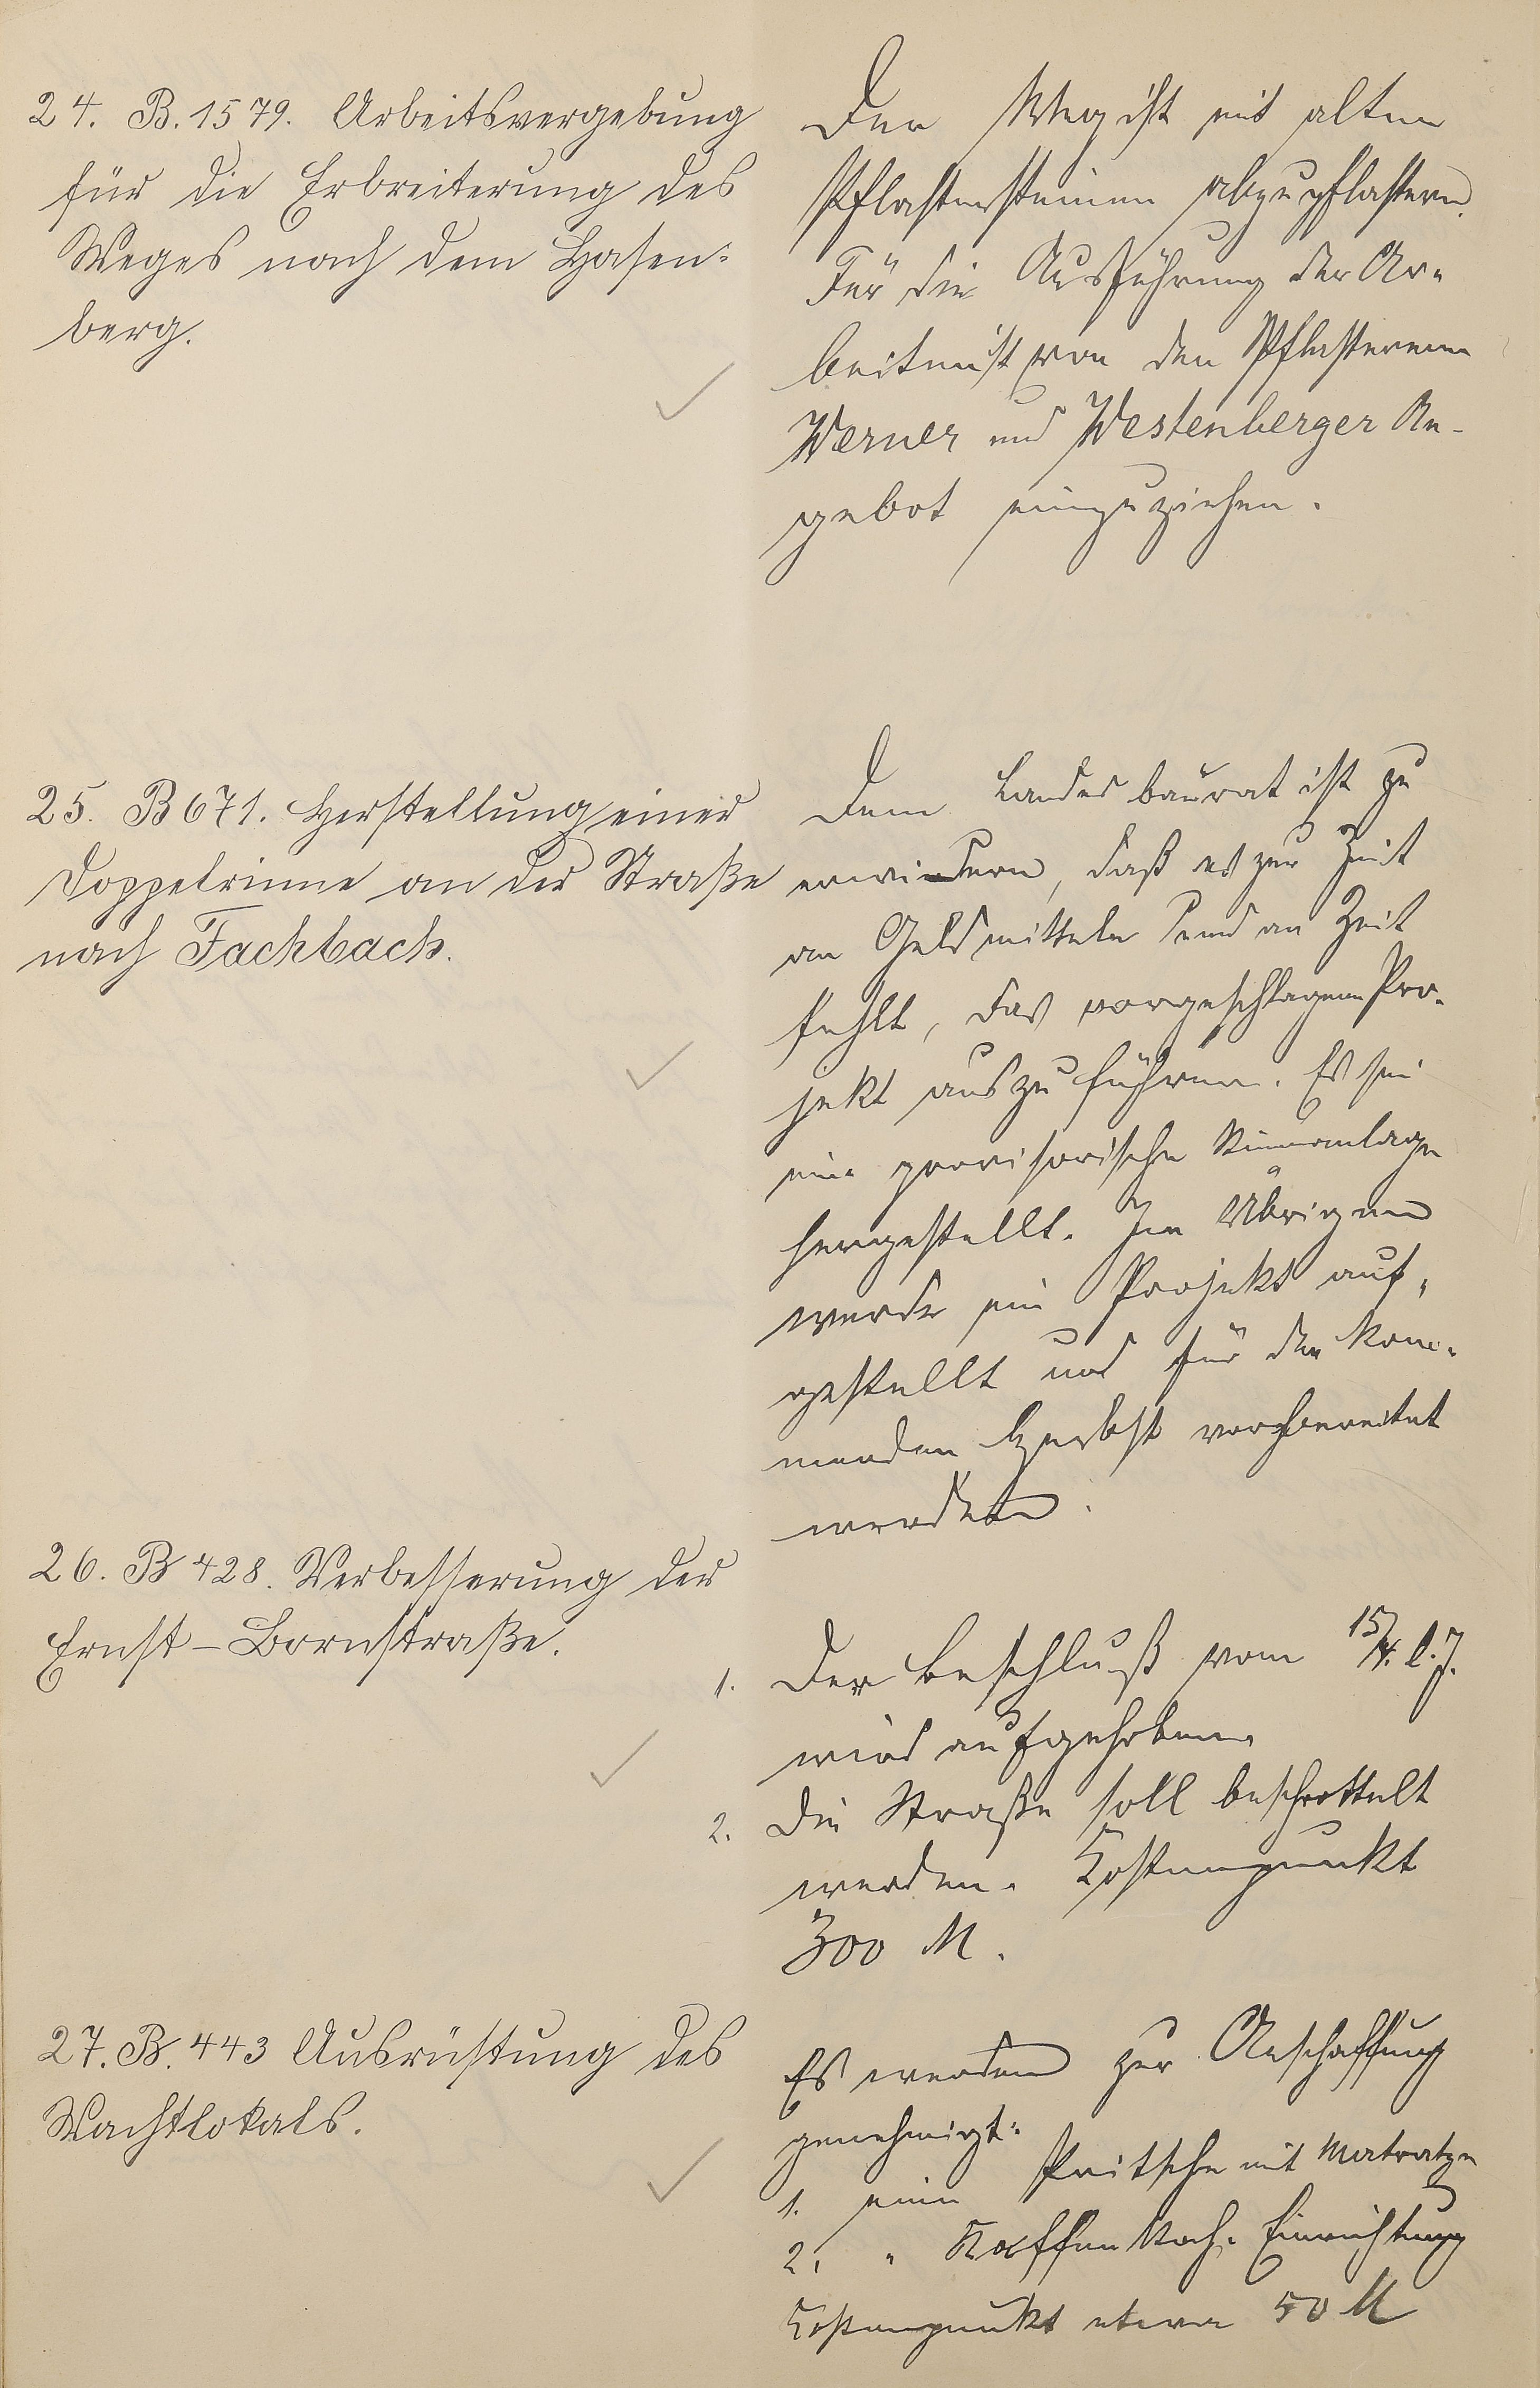 24. B. 1579. Arbeitsvergebung
für die Erbreiterung des
Weges nach dem Hasen-
berg.
Der Weg ist mit alten
Pflastersteinen abzupflastern.
Für die Ausführung der Ar-
beiten ist von den Pflasterern
Werner und Westenberger An-
gebot einzuziehen.
25. B 671. Herstellung einer
Doppelrinne an der Straße
nach Fachbach.
Dem Landesbaurat ist zu
erwidern, daß es zur Zeit
an Geldmitteln und an Zeit
fehlt, das vorgeschlagene Pro-
jekt auszuführen. Es sei
eine provisorische Rinnenanlage
hergestellt. Im Übrigen
werde ein Projekt auf-
gestellt und für den kom-
menden Herbst vorbereitet
werden.
26. B 428. Verbesserung der
Ernst-Bornstraße.
1. Der Beschluß vom 15/4. l. J.
wird aufgehoben.
2. Die Straße soll beschottelt
werden. Kostenpunkt
300 M.
27. B. 443 Ausrüstung des
Wachtlokals.
Es werden zur Anschaffung
genehmigt:
1. eine Pritsche mit Matratze
2. " Kaffee Koch-Einrichtung
Kostenpunkt etwa 50 M